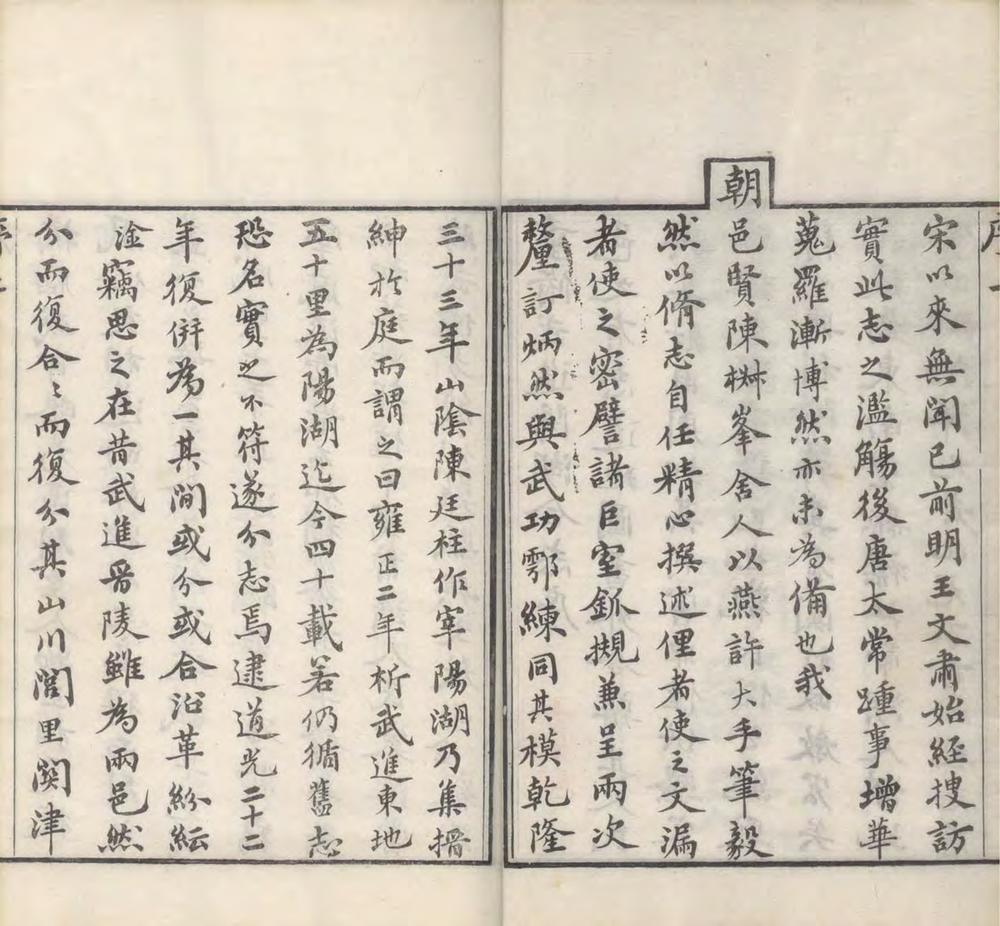 宋以來無聞已前明王文肅始經搜訪
實此志之濫觴後唐太常踵事增華
蒐羅漸博然亦未為備也我
朝
邑賢陳椒峯舍人以燕許大手筆毅
然以脩志自任精心撰述俚者使之文漏
者使之密譬諸巨室釽摫兼呈兩次
釐訂炳然與武功鄠練同其模乾隆
三十三年山陰陳廷柱作宰陽湖乃集搢
紳於庭而謂之曰雍正二年析武進東地
五十里為陽湖迄今四十載若仍循舊志
恐名實之不符遂分志焉逮道光二十二
年復併為一其間或分或合沿革紛紜
淦竊思之在昔武進晉陵雖為兩邑然
分而復合〻而復分其山川閭里關津